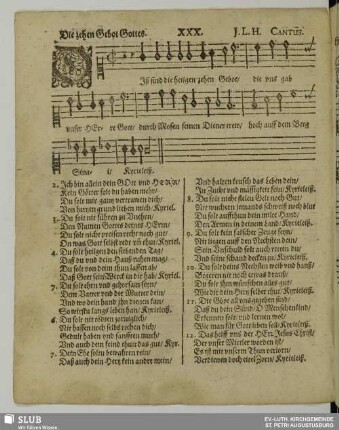 Die zehen Gebot Gottes. XXX. J. L. H. CANTUS.
Diß sind die heilgen zehen Gebot/ die uns gab
unser HErre Gott/ durch Mosen seinen Diener trew/ hoch auff dem Berg
Sinai Kyrieleiß.
2. Ich bin allein dein GOtt und HErr/
Kein Götter solt du haben mehr/
Du solt mir gantz vertrawen dich/
Von hertzen grund lieben mich/ Kyriel.
3. Du solt nit führen zu Unehrn/
Den Namen Gottes deines HErrn/
Du solt nicht preisen recht noch gut/
On was Gott selbst red und thut/ Kyr.
4. Du solt heilgen den siebenden Tag/
Daß du und dein Hauß ruhen mag/
Du solt von deim thun lassen ab/
Daß Gott sein Werck in dir hab/ Kyriel.
5. Du solt ehrn und gehorsam seyn/
Dem Vatter und der Mutter dein/
Und wo dein hand ihn dienen kan/
So wirstu langs leben han/ Kyrieleiß.
6. Du solt nit tödten zorniglich/
Nit hassen noch selbs rechen dich/
Gedult haben und sanfften muth/
Und auch dem feind thun das gut/ Kyr.
7. Dein Ehe soltu bewahren rein/
Daß auch dein Hertz kein ander mein/
Und halten keusch das Leben dein/
In Zucht und mässigkeit fein/ Kyrieleiß.
8. Du solt nicht stelen Gelt noch Gut/
Nit wuchern jemands schweiß noch blut
Du solt auffthun dein milte Hand/
Den Armen in deinem Land/ Kyrieleiß.
9. Du solt kein falscher Zeuge seyn/
Nit liegen auff den Nechsten dein/
Sein Unschuld solt auch retten du/
Und seine schand decken zu/ Kyrieleiß.
10. Du solt deins Nechsten weib und hauß/
Begeren nit noch etwas drauß/
Du solt ihm wünschen alles gut/
Wie dir dein Hertz selber thut/ Kyrieleiß.
11. Die Gbot all uns gegeben sind/
Daß du dein Sünd/ O Menschenkind/
Erkennen solt/ und lernen wol/
Wie man für Gott leben soll/ Kyrieleiß.
12. Das helff uns der HErr Jesus Christ/
Der unser Mittler worden ist/
Es ist mit unserm Thun verlorn/
Verdienen doch eitel Zorn/ Kyrieleiß.
SLUB
Wir führen Wissen.
EV.-LUTH. KIRCHGEMEINDE
ST. PETRI AUGUSTUSBURG